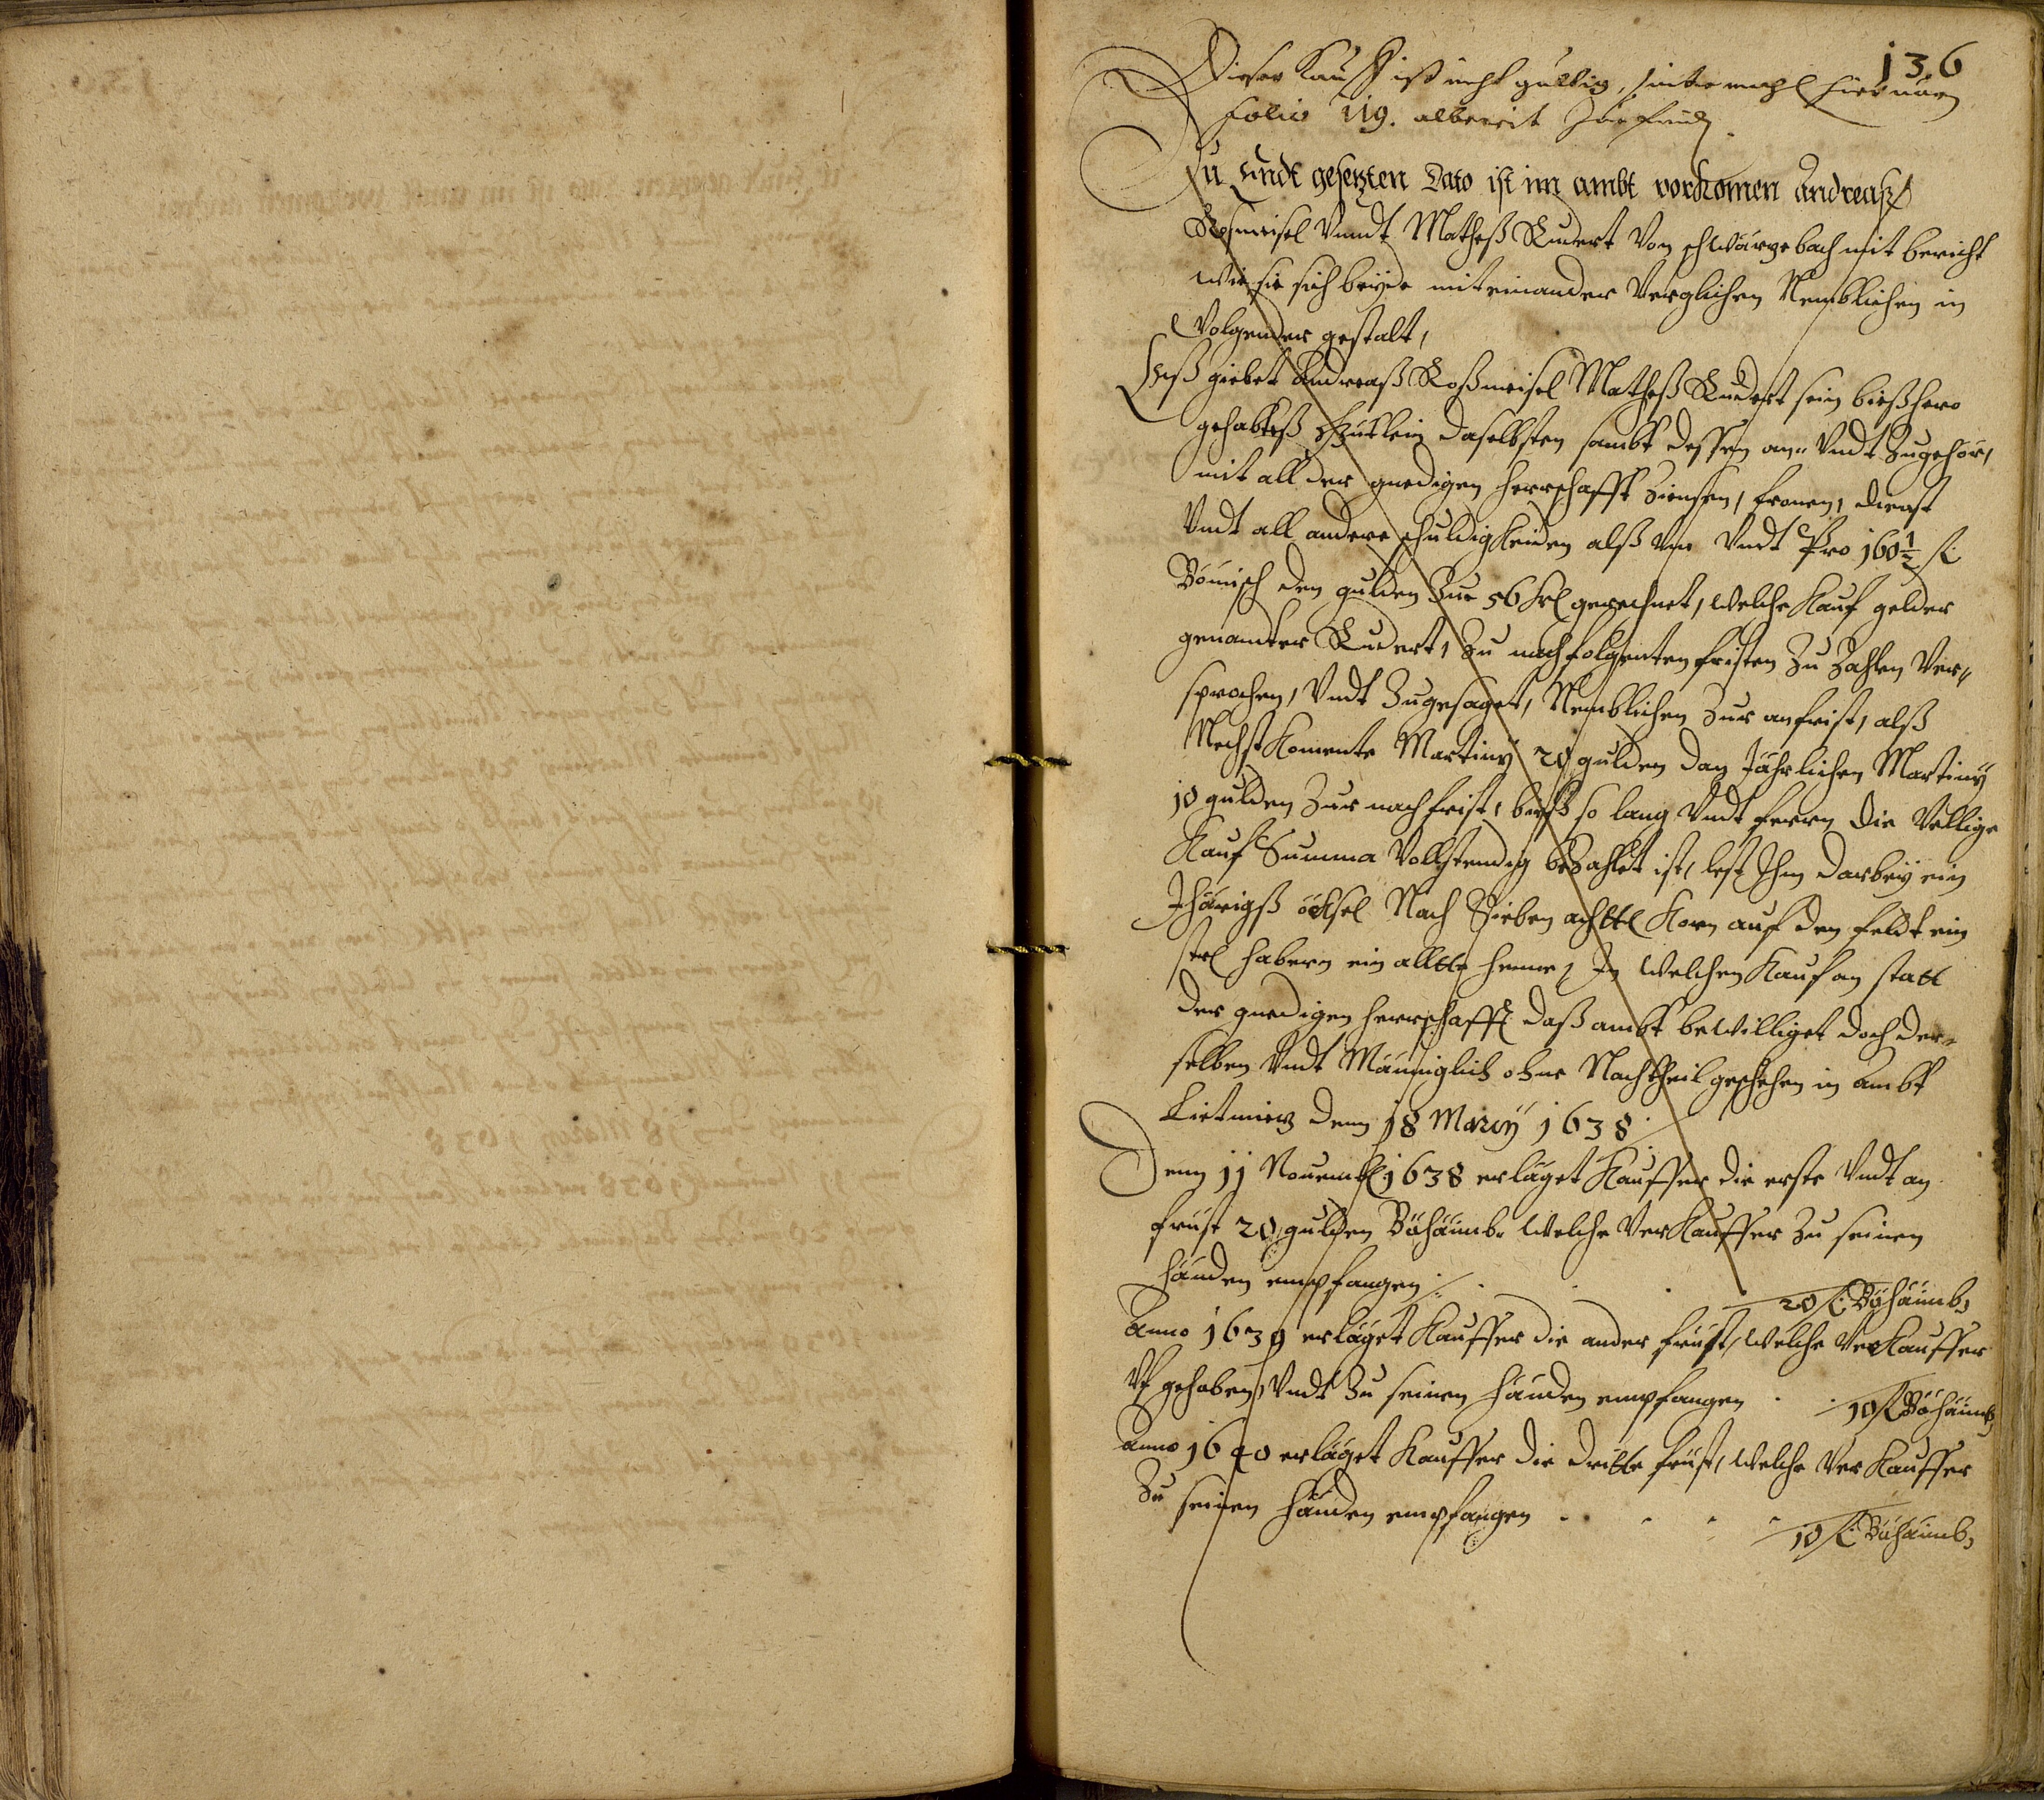 136
Dieser Kauff ist nicht gultig, sinte mahl hieruorn
Folio 119. albereit Zu finden.
Zu Endt gesezten Dato ist im ambt vorkomen Andreaß
Roßmeisel Vnndt Matheß Kudert Von schwarzebach mit bericht
wie sie sich beyde miteinander Verglichen Nemblichen in
Volgender gestalt,
Eß giebet Andreaß Roßmeisel Matheß Kudert sein bießhero
gehabteß guetlein daselbsten sambt dessen an- Vndt Zugehör,
mit all der gnedigen herrschafft Zinnsen, fronen, dienst
Vndt all andere schuldigkeiden alß Vm Vndt Pro 160½ fl:
Bömisch den gulden Zue 56 krl gerechnet, welche Kauf gelder
genamter Kudert, Zu nachfolgenten fristen Zu Zahlen Ver-
sprochen, Vndt Zugesaget, Nemblichen Zur anfrist, alß
Nechst Komente Martiny 20 gulden dan Jährlichen Martiny
10 gulden Zur nachfrist, bieß so lang Vndt fern die Völlige
Kauf Summa Vollstendig bezahlet ist, lest Ihm darbey ein
Jhärigß öcksel Nach Sieben achttl Korn auf den feldt ein
strl habern ein alltte henne, In welchen Kauf an statt
der gnedigen herrschafft daß ambt bewilliget doch der-
selben Vndt Mänigklich ohne Nachtheil geschehen in ambt
den 18 Marcy 1638
Denn 11 Nouembl 1638 erläget Kauffer die erste Vndt an
frist 20 gulden Böhäimb. welche VerKauffer Zu seinen
händen empfangen . . . 20 fl: Böhäimb,
Anno 1639 erläget Kauffer die ander frist, welche VerKauffer
Vf gehaben, Vndt Zu seinen händen empfangen . . 10 fl Böhäimb,
Anno 1640 erläget Kauffer die dritte frist, welche VerKauffer
Zu seinen händen empfangen . . . . 10 fl: Böhäimb,